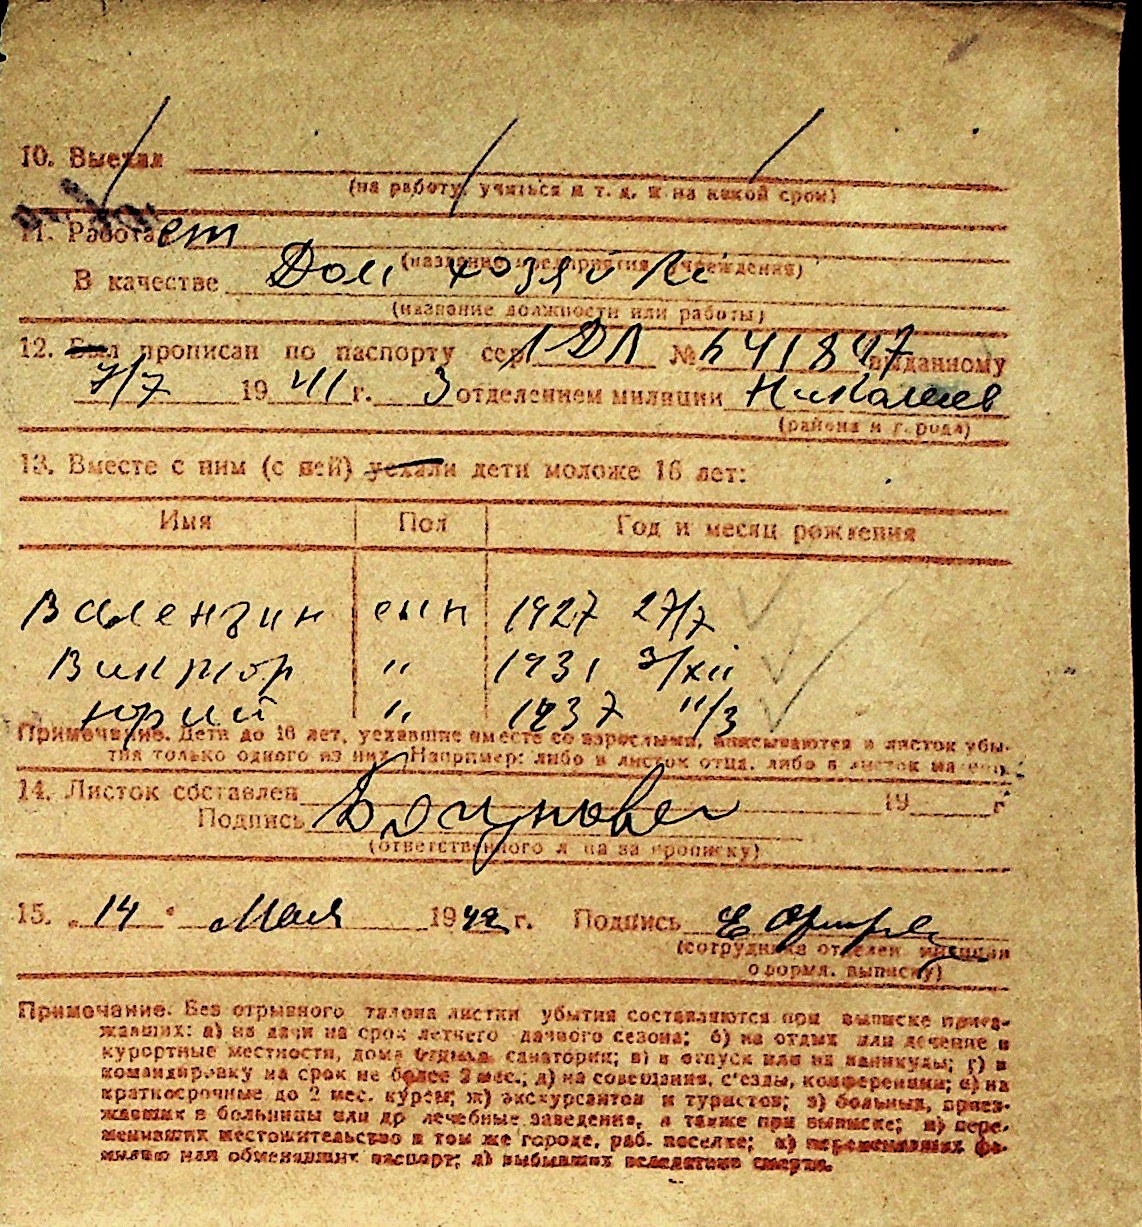 10. Выехал
(на работу, учиться и т. д. и на какой срок)
11. Работает
(название предприятия учреждения)
В качестве Дом хозяйки
(название должности или работы)
12. Был прописан по паспорту сер. ДЛ № 641847 выданному
7/7 1941 г. 3 отделением милиции Николаев
(района и города)
13. Вместе с ним (с ней) уехали дети моложе 16 лет:
Имя Пол Год и месяц рождения
Валентин сын 1927 27/7
Виктор " 1931 3/XII
Юрий " 1937 11/3
Примечание. Дети до 16 лет, уехавшие вместе со взрослыми, вписываются в листок убы-
тия только одного из них. Например: либо в листок отца, либо в листок матери.
14. Листок составлен 19 г.
Подпись
(ответственного лица за прописку)
15. "14" Мая 1942 г. Подпись
(сотрудника отделен. милиции
оформл. выписку)
Примечание. Без отрывного талона листки убытия составляются при выписке приез-
жавших: а) на дачи на срок летнего дачного сезона; б) на отдых или лечение в
курортные местности, дома отдыха, санатории; в) в отпуск или на каникулы; г) в
командировку на срок не более 2 мес.; д) на совещания, с'езды, конференции; е) на
краткосрочные до 2 мес. курсы; ж) экскурсантов и туристов; з) больных, приез-
жавших в больницы или др лечебные заведение, а также при выписке; и) пере-
менивших местожительство в том же городе, раб. поселке; к) переменивших фа-
милию или обменявших паспорт; л) выбывших вследствие смерти.